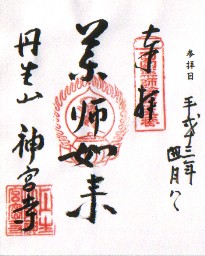 参拝日
平成十三年
四月八
奉拝
薬師如来
丹生山
神宮寺